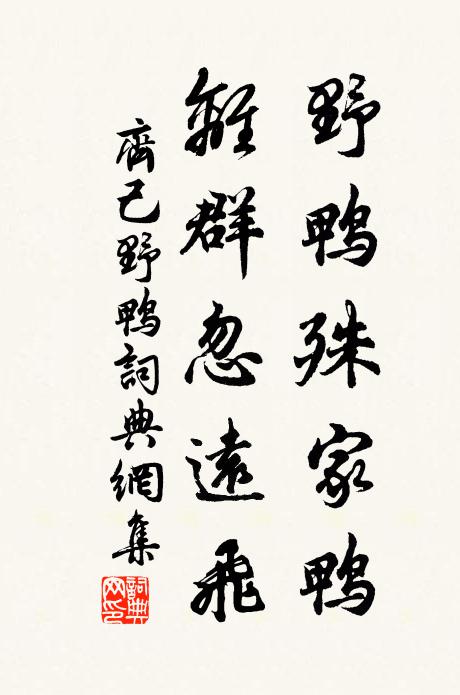 野鴨殊家鴨
離群忽遠飛
齊己野鴨詞典網集
詞典网印